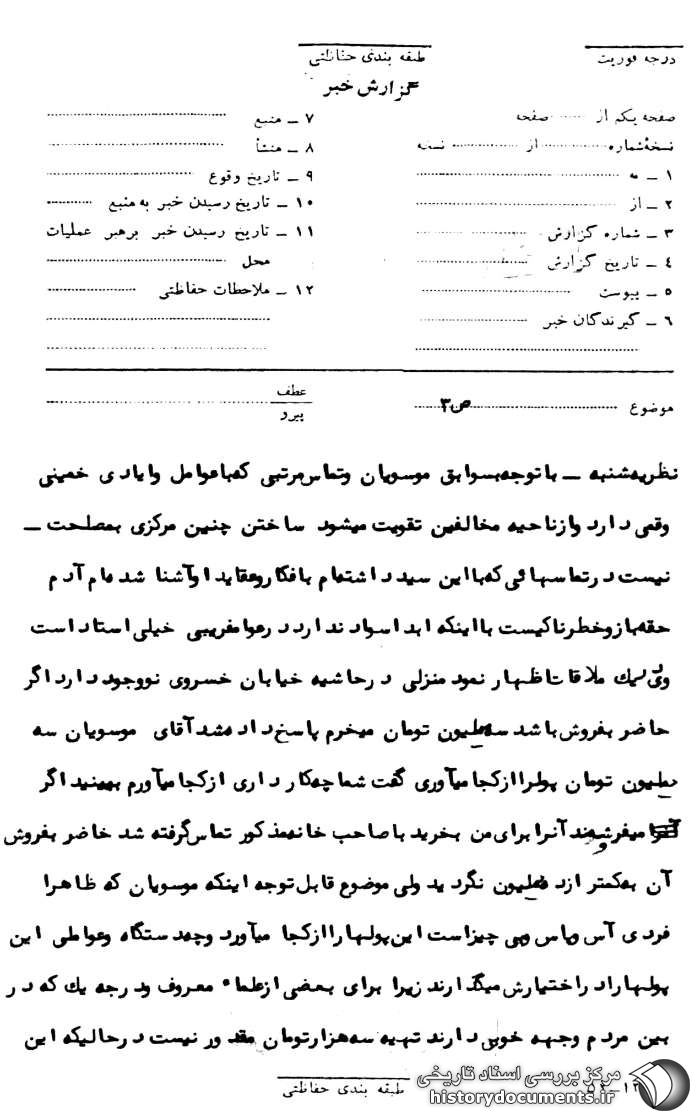 درجه فوریت
طبقه بندی حفاظتی
گزارش خبر
صفحه یکم از ........ صفحه
نسخهٔ شماره ............ از ............ نسخه
۱ ــ به
۲ ــ از
۳ ــ شماره گزارش
۴ ــ تاریخ گزارش
۵ ــ پیوست
۶ ــ گیرندگان خبر
۷ ــ منبع
۸ ــ منشأ
۹ ــ تاریخ وقوع
۱۰ ــ تاریخ رسیدن خبر به منبع
۱۱ ــ تاریخ رسیدن خبر برهبر عملیات
محل
۱۲ ــ ملاحظات حفاظتی
موضوع ص۳
عطف
پیرو
نظریه شنبه ــ باتوجه بسوابق موسویان وتماس مرتبی که باعوامل وایادی خمینی
وقمی دارد وازناحیه مخالفین تقویت میشود ساختن چنین مرکزی بمصلحت ــ
نیست درتماسهائی که بااین سید داشته ام بافکاروعقاید اوآشنا شده ام آدم
حقه بازوخطرناکیست بااینکه ابدا سواد ندارد درعوامفریبی خیلی استاد است
وی یک ملاقات اظهار نمود منزلی درحاشیه خیابان خسروی نووجود دارد اگر
حاضر بفروش باشد سه ملیون تومان میخرم پاسخ داده شد آقای موسویان سه
ملیون تومان پولرا ازکجا میآوری گفت شما چه کار داری ازکجا میآورم ببینید اگر
میفرشند آنرا برای من بخرید باصاحب خانه مذکور تماس گرفته شد حاضر بفروش
آن به کمتر ازده ملیون نگردید ولی موضوع قابل توجه اینکه موسویان که ظاهرا
فردی آس وپاس وبی چیزاست این پولهارا ازکجا میآورد وچه دستگاه وعواملی این
پولهارا در اختیارش میگذارند زیرا برای بعضی ازعلماء معروف ودرجه یک که در
بین مردم وجهه خوبی دارند تهیه سه هزارتومان مقدور نیست درحالیکه این
طبقه بندی حفاظتی
مرکز بررسی اسناد تاریخی
historydocuments.ir